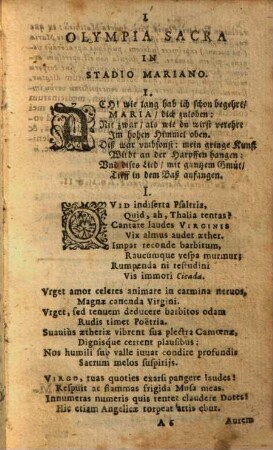 I
OLYMPIA SACRA
IN
STADIO MARIANO.
I.
ACH! wie lang hab ich schon begehrt/
MARIA/ dich zuloben:
Nit zwar/ als wie du wirst verehrt
Im hohen Himmel oben.
Diß wär umbsonst: mein gringe Kunst
Bleibt an der Harpffen hangen:
Und dises Lied/ mit gantzem Gmüt/
Tieff in dem Baß anfangen.
I.
QVID indiserta Psaltria,
Quid, ah, Thalia tentas?
Cantate laudes VIRGINIS
Vix almus audet æther.
Impar reconde barbitum,
Raucumque vespa murmur;
Rumpenda ni testudini
Vis immori Cicada.
Vrget amor celeres animare in carmina nervos,
Magnæ canenda Virgini.
Vrget, sed tenuem deducere barbitos odam
Rudis timet Poëtria.
Suaviùs ætheriæ vibrent sua plectra Camœnæ,
Dignisque certent plausibus;
Nos humili sub valle iuvat condire profundis
Sacrum melos suspirijs.
VIRGO, tuas quoties exarsi pangere laudes!
Respuit at flammas frigida Musa meas.
Innumeras numeris quis tentet claudere Dotes?
Hîc etiam Angelicæ torpeat artis ebur.
A 6 Aurem